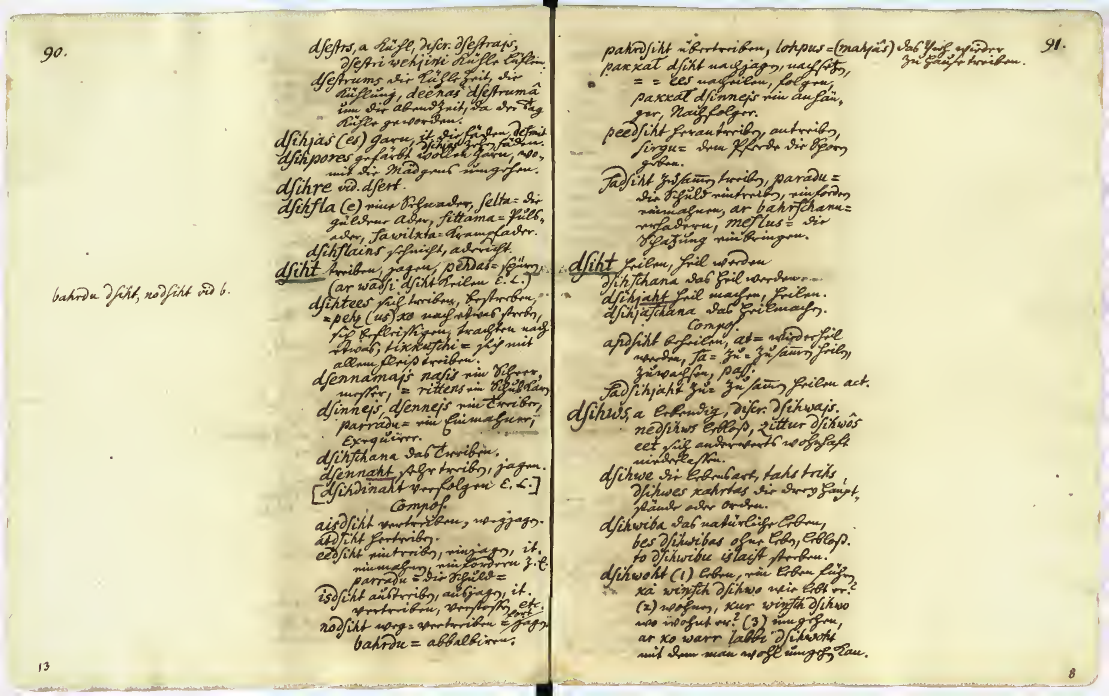 90.
dsestrs, a kühl, discr. dsestrajs,
dsestri wehjini kühle Lüfte.
dsestrums die Kühle Zeit, die
Kühlung, deenas dsestrumâ
um die Abendzeit, da der Tag
kühle geworden.
dsihjas (es) garn, it. die fäden,
dsihpores gefärbt wollen garn, wo-
mit die Mädgens umgehen.
dsihre vid. dsert.
dsihsla (e) eine Schnader, selta= die
güldene Ader, sittama= Puls-
ader, sawilkta= Krampfader.
dsihslains schnicht, adericht.
dsiht treiben, jagen, pehdas= spüren
(ar wadsi dsiht keilen E. L.)
dsihtees sich treiben, bestreben,
=pehz (us) ko nach etwas streben,
sich befleissigen, trachten nach
etwas, tikkuschi= sich mit
allem fleiß treiben.
dsennamajs nasis ein Scheer-
messer, = rittens ein Schubkarn
dsinnejs, dsennejs ein Treiber,
parradu= ein Einmahner,
Exequirer.
dsihschana das Treiben.
dsennaht sehr treiben, jagen.
[dsihdinaht verfolgen E. L.]
Compos.
aisdsiht vertreiben, wegjagen.
atdsiht hertreiben.
eedsiht eintreiben, einjagen, it.
einmahnen, einfordern z. E.
parradu= die Schuld=
isdsiht austreiben, ausjagen, it.
vertreiben, verstossen, etc.
nodsiht weg= vertreiben = jagen
bahrdu= abbalbiren.
bahrdu dsiht, nodsiht vid b.
13
91.
pahrdsiht übertreiben, lohpus=(mahjâs) das Vieh wieder
zu hause treiben.
pakkat dsiht nachjagen, nachsetzen,
= = ees nacheilen, folgen,
pakkat dsinnejs ein anhän-
ger, Nachfolger.
peedsiht herantreiben, antreiben,
sirgu= dem Pferde die Sporn
geben.
Sadsiht zusamen treiben, paradu=
die Schuld eintreiben, einfordern
einmahnen, ar bahrschanu=
erhadern, meslus= die
Schatzung einbringen.
dsiht heilen, heil werden
dsihschana das heil werden.
dsihjaht heil machen, heilen.
dsihjaschana das heilmachen.
Compos.
apdsiht beheilen, at= wieder heil
werden, sa= zu= zusamen heilen,
zuwachsen, pass.
Sadsihjaht zu= zusamen heilen act.
dsihws, a lebendig, discr. dsihwajs.
nedsihws leblos, zittur dsihwôs
eet sich anderwerts wohnhaft
niederlassen.
dsihwe die Lebensart, tahs trihs
dsihwes kahrtas die drey Haupt-
stände oder Orden.
dsihwiba das natürliche Leben,
bes dsihwibas ohne Leben, leblos.
to dsihwibu islaist sterben.
dsihwoht (1) leben, ein Leben führen
kâ winsch dsihwo wie lebt er?
(2) wohnen, kur winsch dsihwo
wo wohnt er? (3) umgehen,
ar ko warr labbi dsihwoht
mit dem man wohl umgehen kan.
8